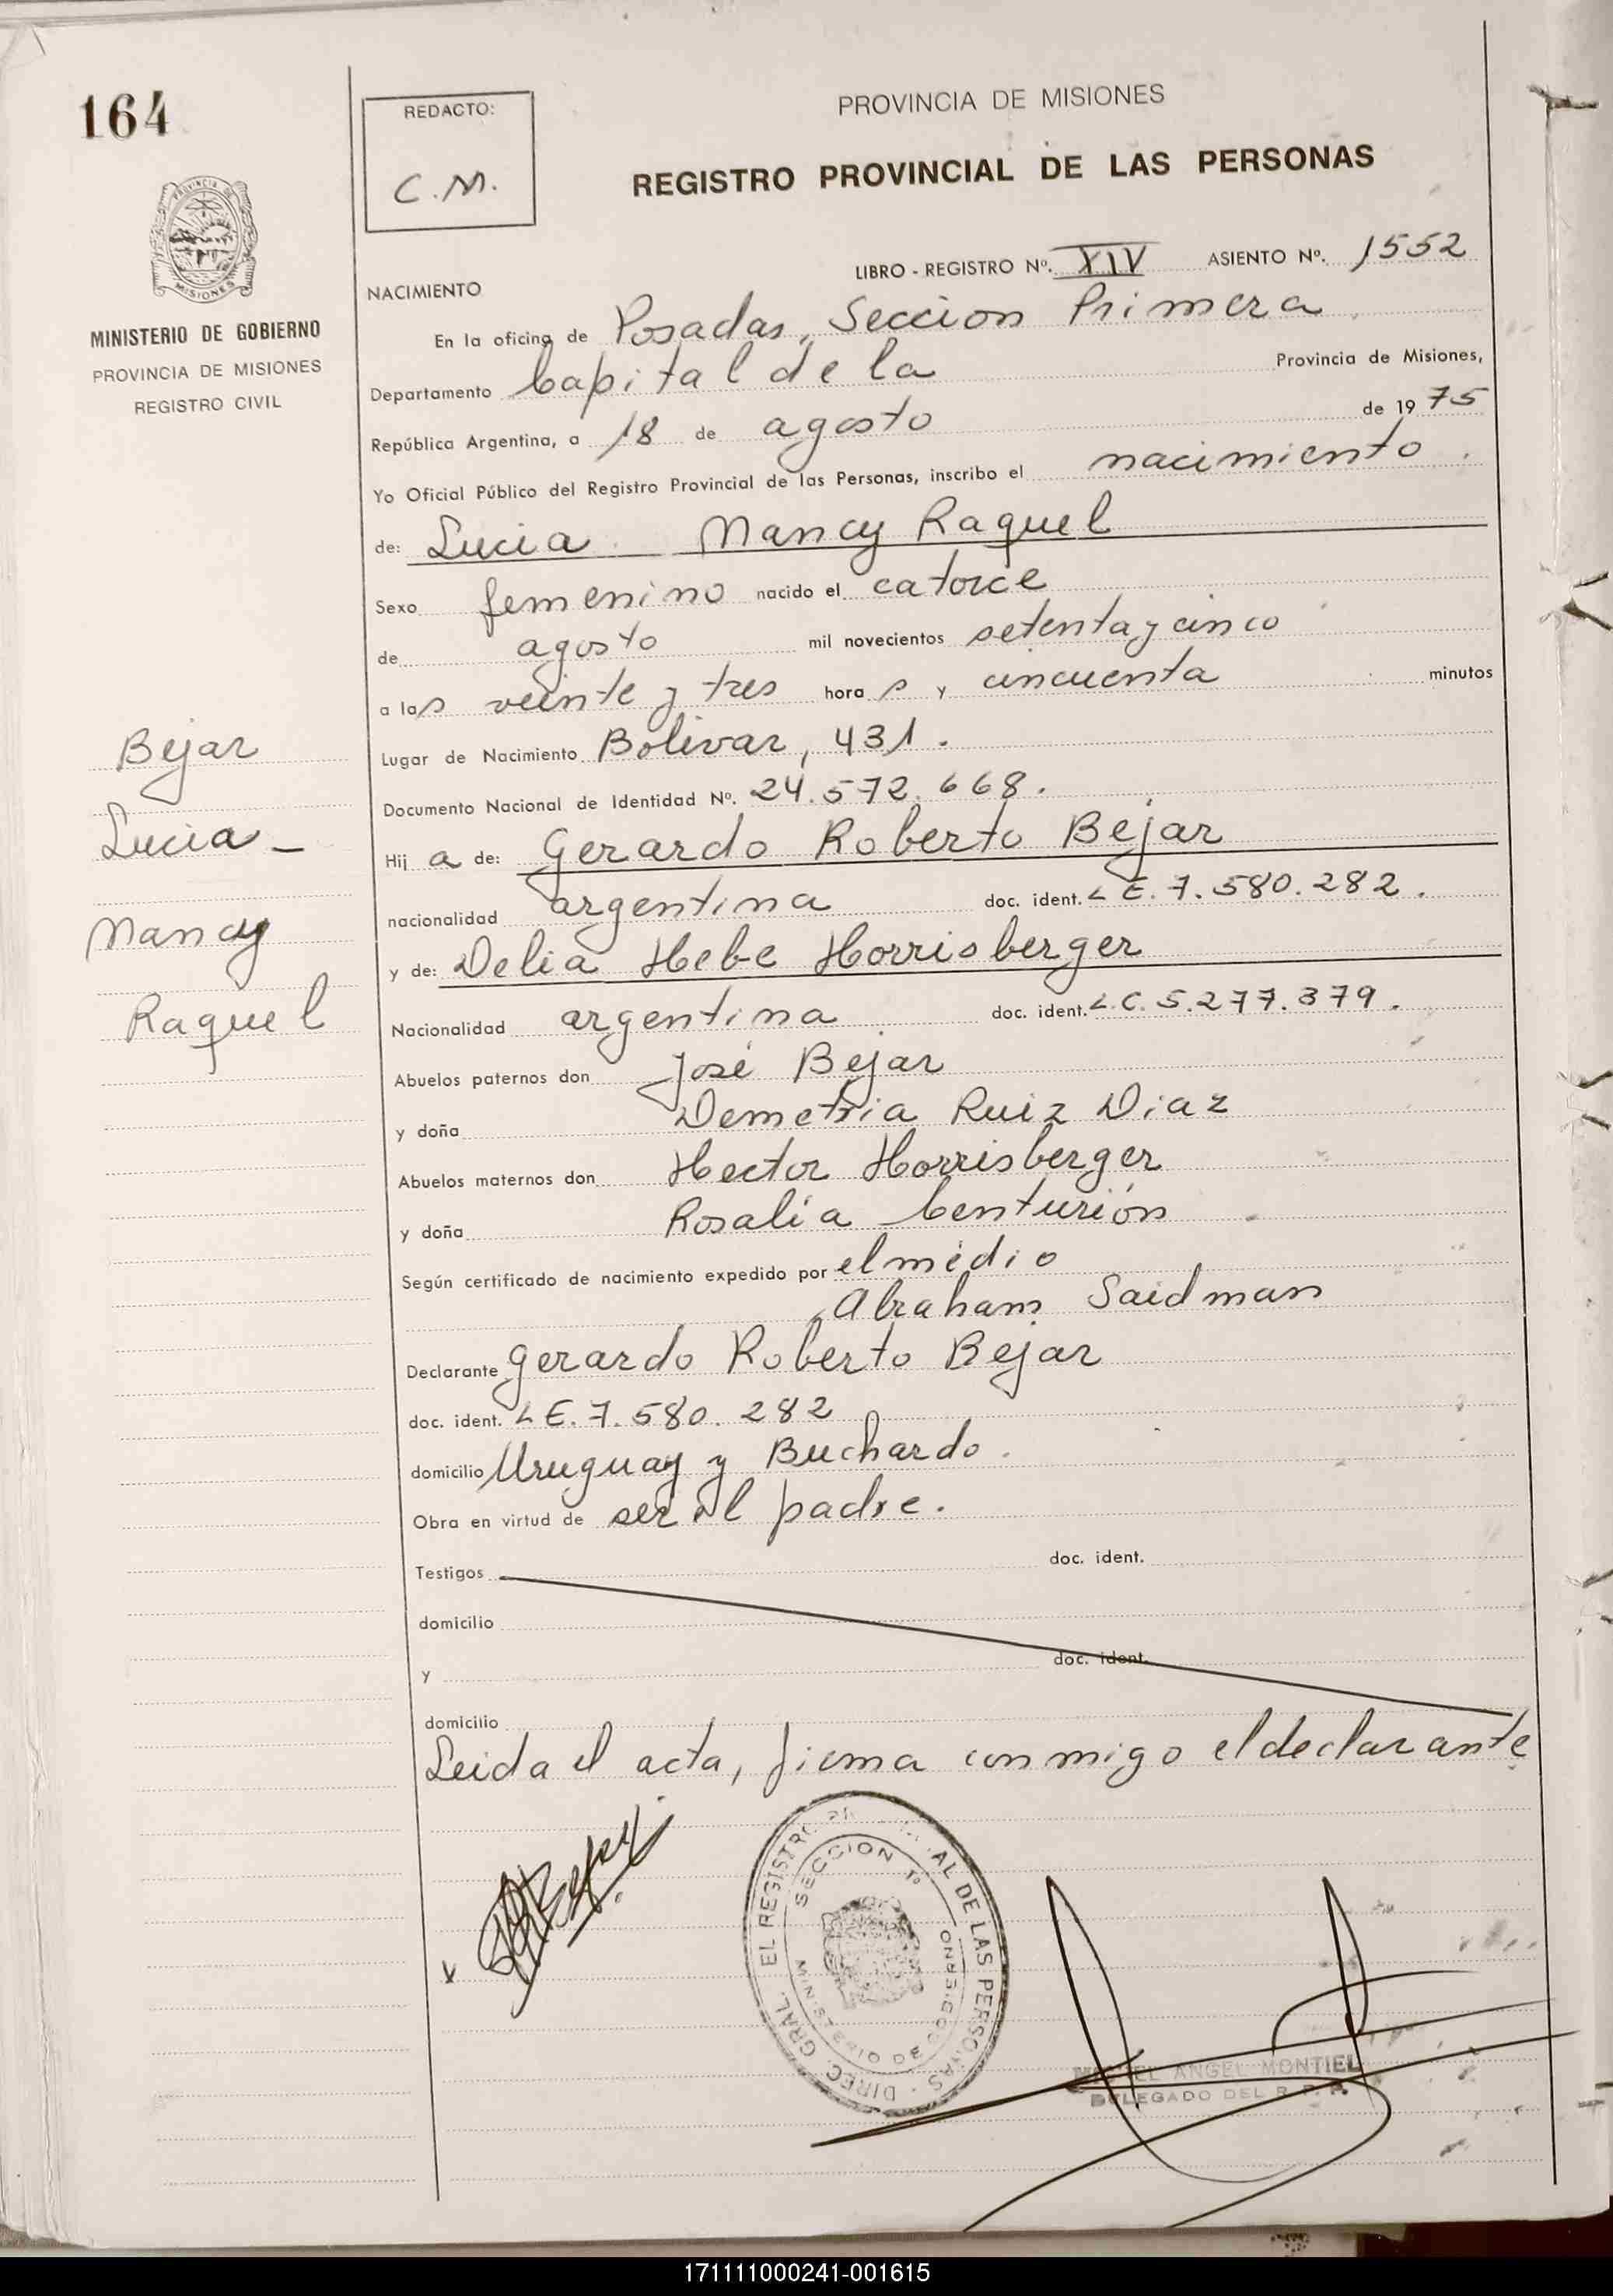 164
REDACTO:
C.M.
PROVINCIA DE MISIONES
REGISTRO PROVINCIAL DE LAS PERSONAS
PROVINCIA DE
MISIONES
MINISTERIO DE GOBIERNO
PROVINCIA DE MISIONES
REGISTRO CIVIL
LIBRO - REGISTRO Nº. XIV ASIENTO Nº. 1552
NACIMIENTO
En la oficina de Posadas, Seccion Primera
Departamento Capital de la Provincia de Misiones,
República Argentina, a 18 de agosto de 1975
Yo Oficial Público del Registro Provincial de las Personas, inscribo el nacimiento.
de: Lucia Nancy Raquel
Sexo femenino nacido el catorce
de agosto mil novecientos setenta y cinco
a las veinte y tres hora s y cincuenta minutos
Lugar de Nacimiento Bolivar, 431.
Documento Nacional de Identidad Nº. 24.572.668.
Hij a de: Gerardo Roberto Bejar
nacionalidad argentina doc. ident. L E. 7.580.282.
y de: Delia Hebe Horrisberger
Nacionalidad argentina doc. ident. L.C. 5.277.379.
Abuelos paternos don José Bejar
y doña Demetria Ruiz Diaz
Abuelos maternos don Hector Horrisberger
y doña Rosalía Centurión
Según certificado de nacimiento expedido por el médio
Abraham Saidman
Declarante Gerardo Roberto Bejar
doc. ident. L E. 7.580.282
domicilio Uruguay y Buchardo.
Obra en virtud de ser el padre.
Testigos doc. ident.
domicilio
y doc. ident.
domicilio
Leida el acta, firma conmigo el declarante
Bejar
Lucia -
Nancy
Raquel
DIREC. GRAL. EL REGISTRO AL DE LAS PERSONAS
SECCION 1º
MINISTERIO DE GOBIERNO
ANGEL MONTIEL
DELEGADO DEL R. P. P.
171111000241-001615